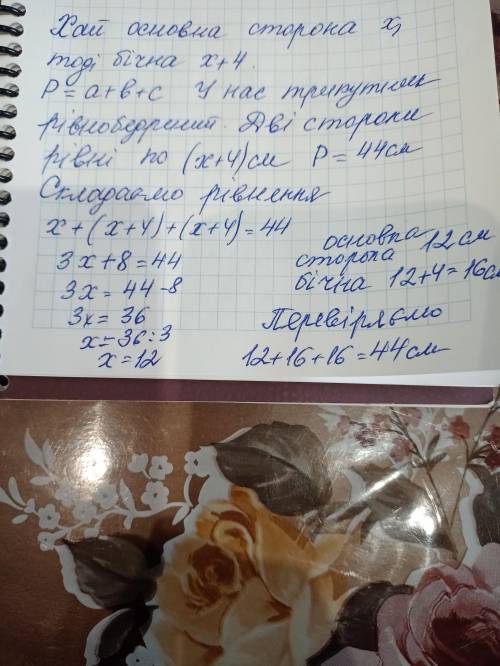 Хай основна сторона х,
тоді бічна х+4.
Р=а+в+с У нас трикутник
рівнобедрений. Дві сторони
рівні по (х+4)см Р=44см
Складаємо рівнення
х+(х+4)+(х+4)=44
3х+8=44
3х=44-8
3х=36
х=36:3
х=12
основна
сторона 12см
бічна 12+4=16см
Перевіряємо
12+16+16=44см